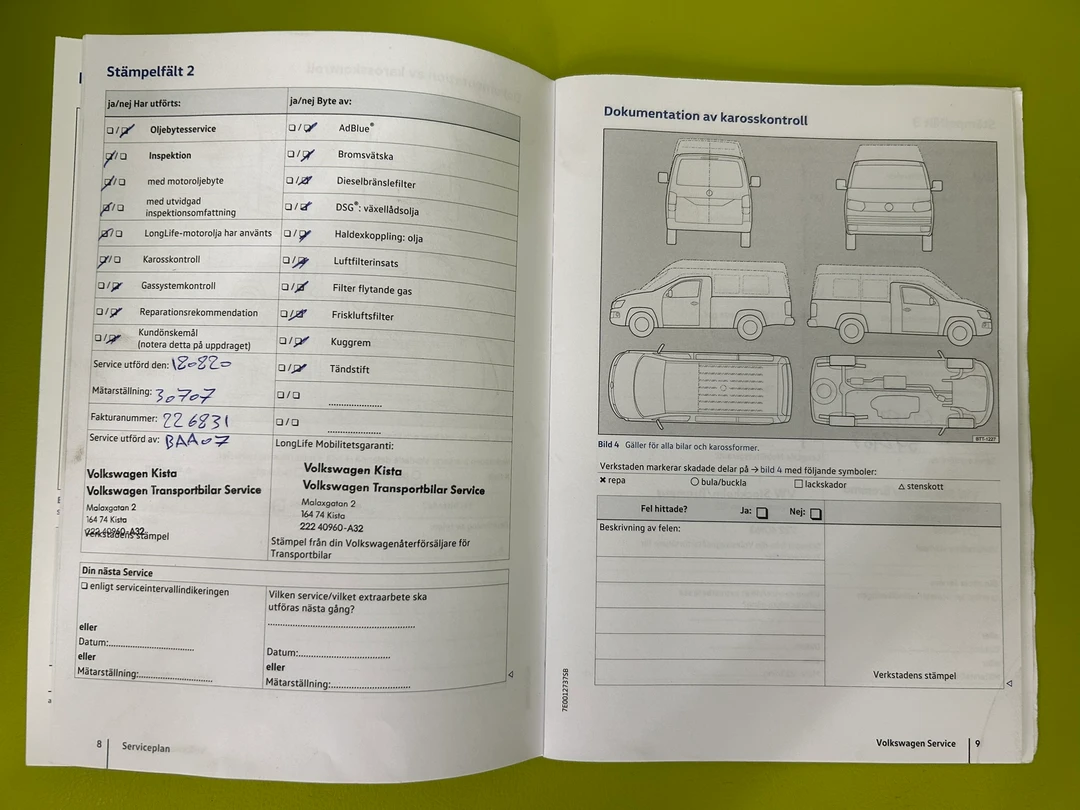 Stämpelfält 2
ja/nej Har utförts:
ja/nej Byte av:
Oljebytesservice
AdBlue®
Inspektion
Bromsvätska
med motoroljebyte
Dieselbränslefilter
med utvidgad
inspektionsomfattning
DSG®: växellådsolja
LongLife-motorolja har använts
Haldexkoppling: olja
Karosskontroll
Luftfilterinsats
Gassystemkontroll
Filter flytande gas
Reparationsrekommendation
Friskluftsfilter
Kundönskemål
(notera detta på uppdraget)
Kuggrem
Service utförd den: 180820
Tändstift
Mätarställning: 30707
Fakturanummer: 226831
Service utförd av: BAA07
LongLife Mobilitetsgaranti:
Volkswagen Kista
Volkswagen Transportbilar Service
Malaxgatan 2
164 74 Kista
222 40960-A32
Verkstadens stämpel
Volkswagen Kista
Volkswagen Transportbilar Service
Malaxgatan 2
164 74 Kista
222 40960-A32
Stämpel från din Volkswagenåterförsäljare för
Transportbilar
Din nästa Service
enligt serviceintervallindikeringen
eller
Datum:
eller
Mätarställning:
Vilken service/vilket extraarbete ska
utföras nästa gång?
Datum:
eller
Mätarställning:
8 Serviceplan
Dokumentation av karosskontroll
BTT-1227
Bild 4 Gäller för alla bilar och karossformer.
Verkstaden markerar skadade delar på → bild 4 med följande symboler:
✖ repa ○ bula/buckla □ lackskador △ stenskott
Fel hittade? Ja: Nej:
Beskrivning av felen:
Verkstadens stämpel
7E0012737SB
Volkswagen Service 9